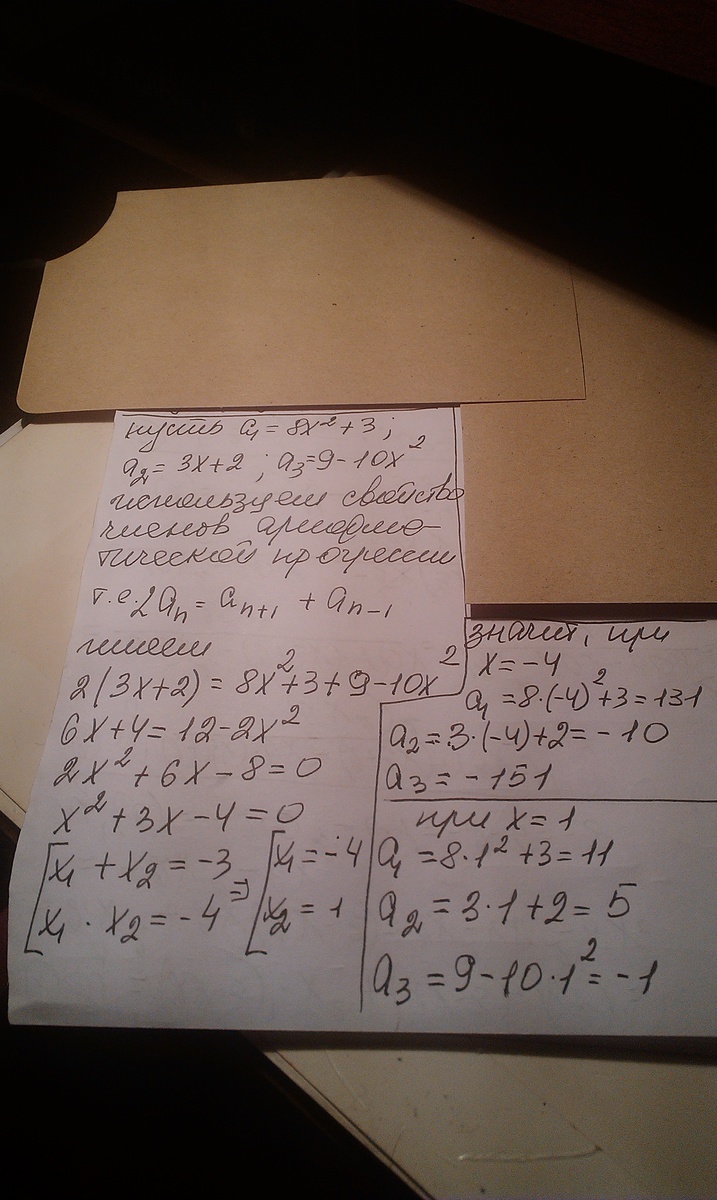 пусть a₁ = 8x² + 3 ;
a₂ = 3x+2 ; a₃ = 9 - 10x²
используем свойство
членов арифме-
тической прогрессии
т.е. 2aₙ = aₙ₊₁ + aₙ₋₁
имеем
2(3x+2) = 8x²+3+9-10x²
6x+4 = 12-2x²
2x² + 6x - 8 = 0
x² + 3x - 4 = 0
[x₁ + x₂ = -3 ⇒ [x₁ = -4
[x₁ · x₂ = -4 [x₂ = 1
значит, при
x = -4
a₁ = 8·(-4)²+3 = 131
a₂ = 3·(-4)+2 = -10
a₃ = -151
при x = 1
a₁ = 8·1² + 3 = 11
a₂ = 3·1 + 2 = 5
a₃ = 9 - 10·1² = -1